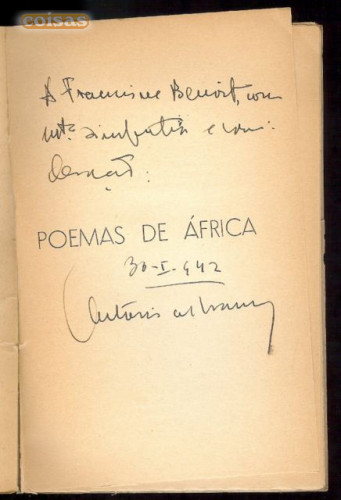 coisas
A Francine Benoit, com
mta simpatia e consi-
deração:
POEMAS DE ÁFRICA
30-I-942
António